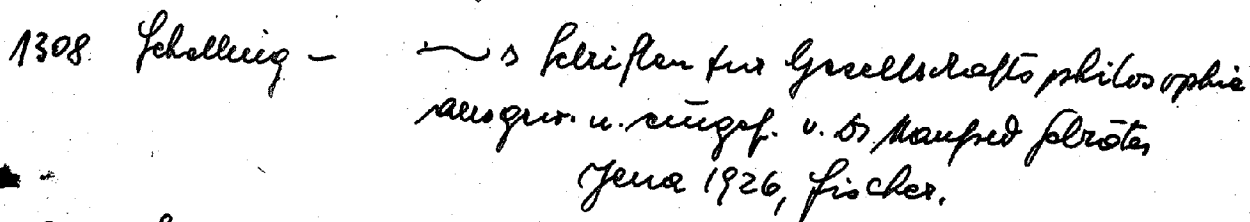 1308. Schelling – ~s Schriften zur Gesellschaftsphilosophie
ausgew. u. eingef. v. Dr Manfred Schröter
Jena 1926, Fischer.